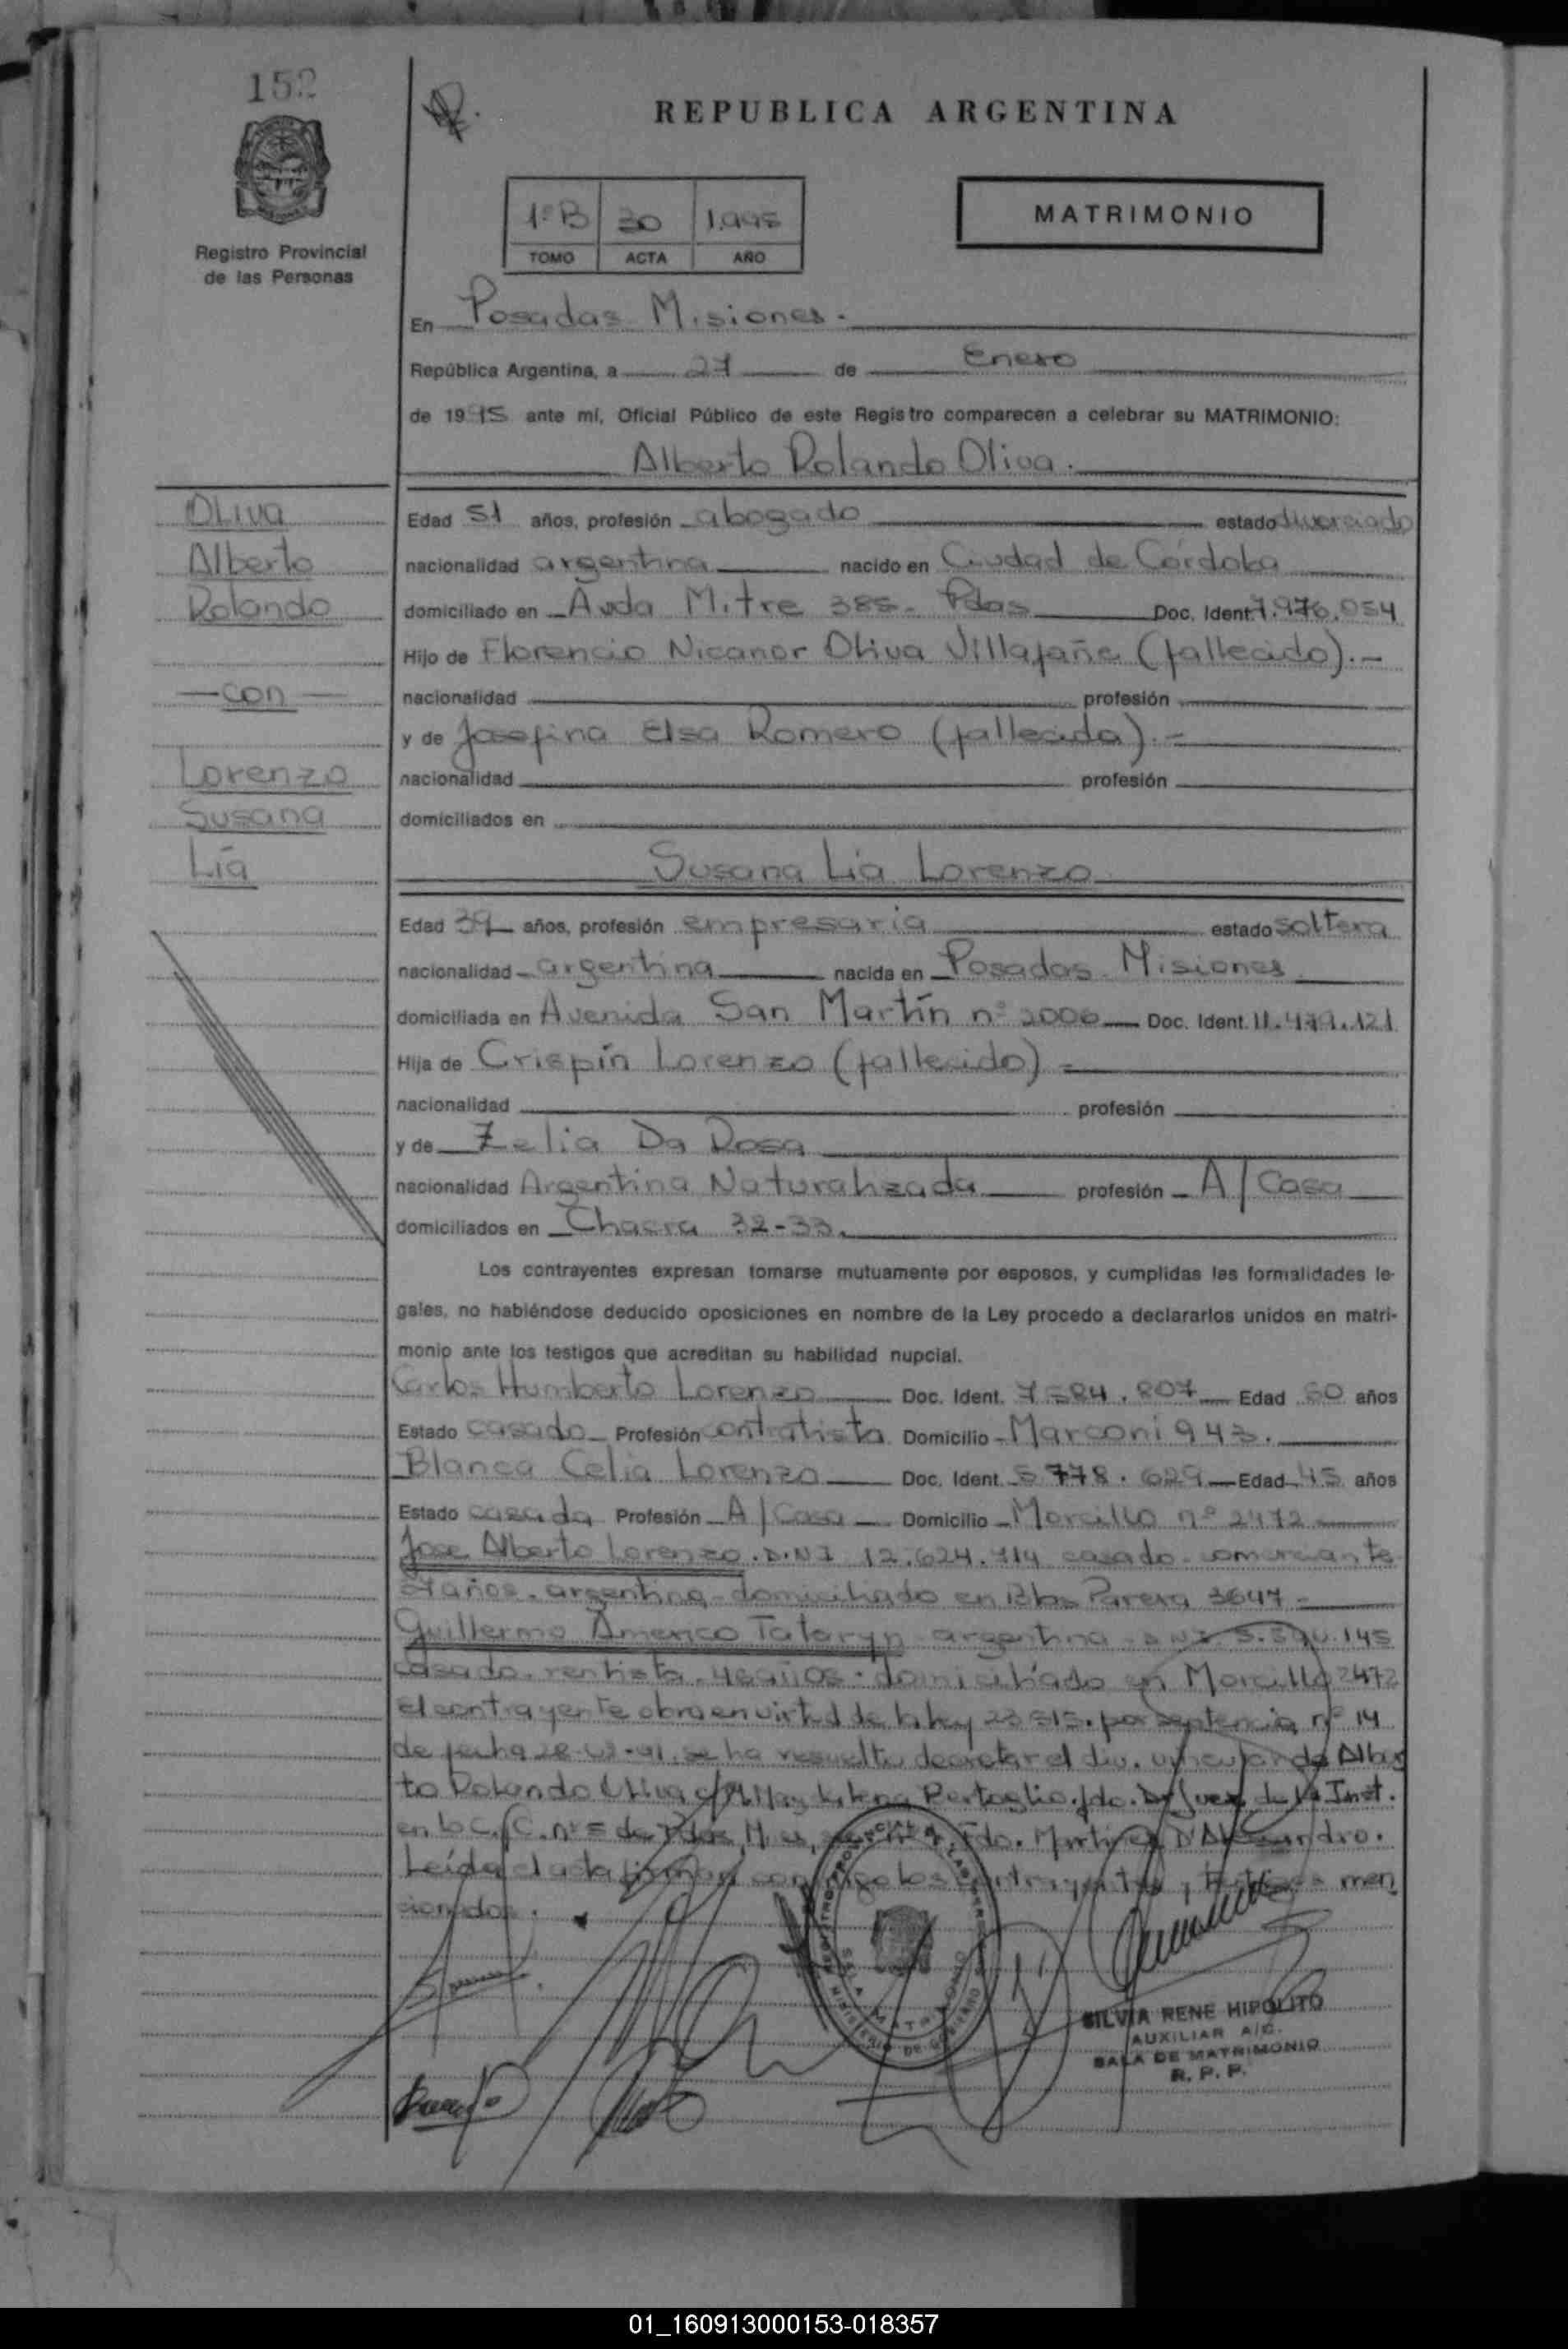 152
REPUBLICA ARGENTINA
1º B 30 1.995
TOMO ACTA AÑO
MATRIMONIO
Registro Provincial
de las Personas
En Posadas Misiones.
República Argentina, a 27 de Enero
de 1995 ante mí, Oficial Público de este Registro comparecen a celebrar su MATRIMONIO:
Alberto Rolando Oliva.
OLIVA
Alberto
Rolando
con
Lorenzo
Susana
Lía
Edad 51 años, profesión abogado estado divorciado
nacionalidad argentina nacido en Ciudad de Córdoba
domiciliado en Avda Mitre 385. Pdas Doc. Ident. 7.976.054
Hijo de Florencio Nicanor Oliva Villafañe (fallecido).-
nacionalidad profesión
y de Josefina Elsa Romero (fallecida).-
nacionalidad profesión
domiciliados en
Susana Lía Lorenzo
Edad 39 años, profesión empresaria estado soltera
nacionalidad argentina nacida en Posadas Misiones
domiciliada en Avenida San Martín nº 2006 Doc. Ident. 11.479.121
Hija de Crispín Lorenzo (fallecido)
nacionalidad profesión
y de Zelia Da Rosa
nacionalidad Argentina Naturalizada profesión A/Casa
domiciliados en Chacra 32-33.
Los contrayentes expresan tomarse mutuamente por esposos, y cumplidas las formalidades le-
gales, no habiéndose deducido oposiciones en nombre de la Ley procedo a declararlos unidos en matri-
monio ante los testigos que acreditan su habilidad nupcial.
Carlos Humberto Lorenzo Doc. Ident. 7584.807 Edad 50 años
Estado casado Profesión contratista Domicilio Marconi 943.
Blanca Celia Lorenzo Doc. Ident. 5 778.629 Edad 45 años
Estado casada Profesión A/Casa Domicilio Morcillo nº 2472
Jose Alberto Lorenzo. D.N.I 12.624.714 casado comerciante
años. argentino domiciliado en Blas Parera 3647
Guillermo Americo Tataryn argentino D.N.I. 145
casado. rentista. años. domiciliado en Morcillo 2472
El contrayente obra en virtud de la ley 23 515. por sentencia nº 14
de fecha 28-07-91. se ha resuelto decretar el div. vincular de Alber
to Rolando Oliva c/ Milena Bertoglio. fdo. Dr Juez de la Inst.
en lo C. y C. nº 5 de Pdas, Fdo. Martinez D'Alessandro.
Leída el acta firman conmigo los contrayentes y testigos men
cionados.
REGISTRO PROVINCIAL DE LAS PERSONAS
SALA MATRIMONIO
MINISTERIO DE GOBIERNO
SILVIA RENE HIPOLITO
AUXILIAR A/C.
SALA DE MATRIMONIO
R. P. P.
01_160913000153-018357